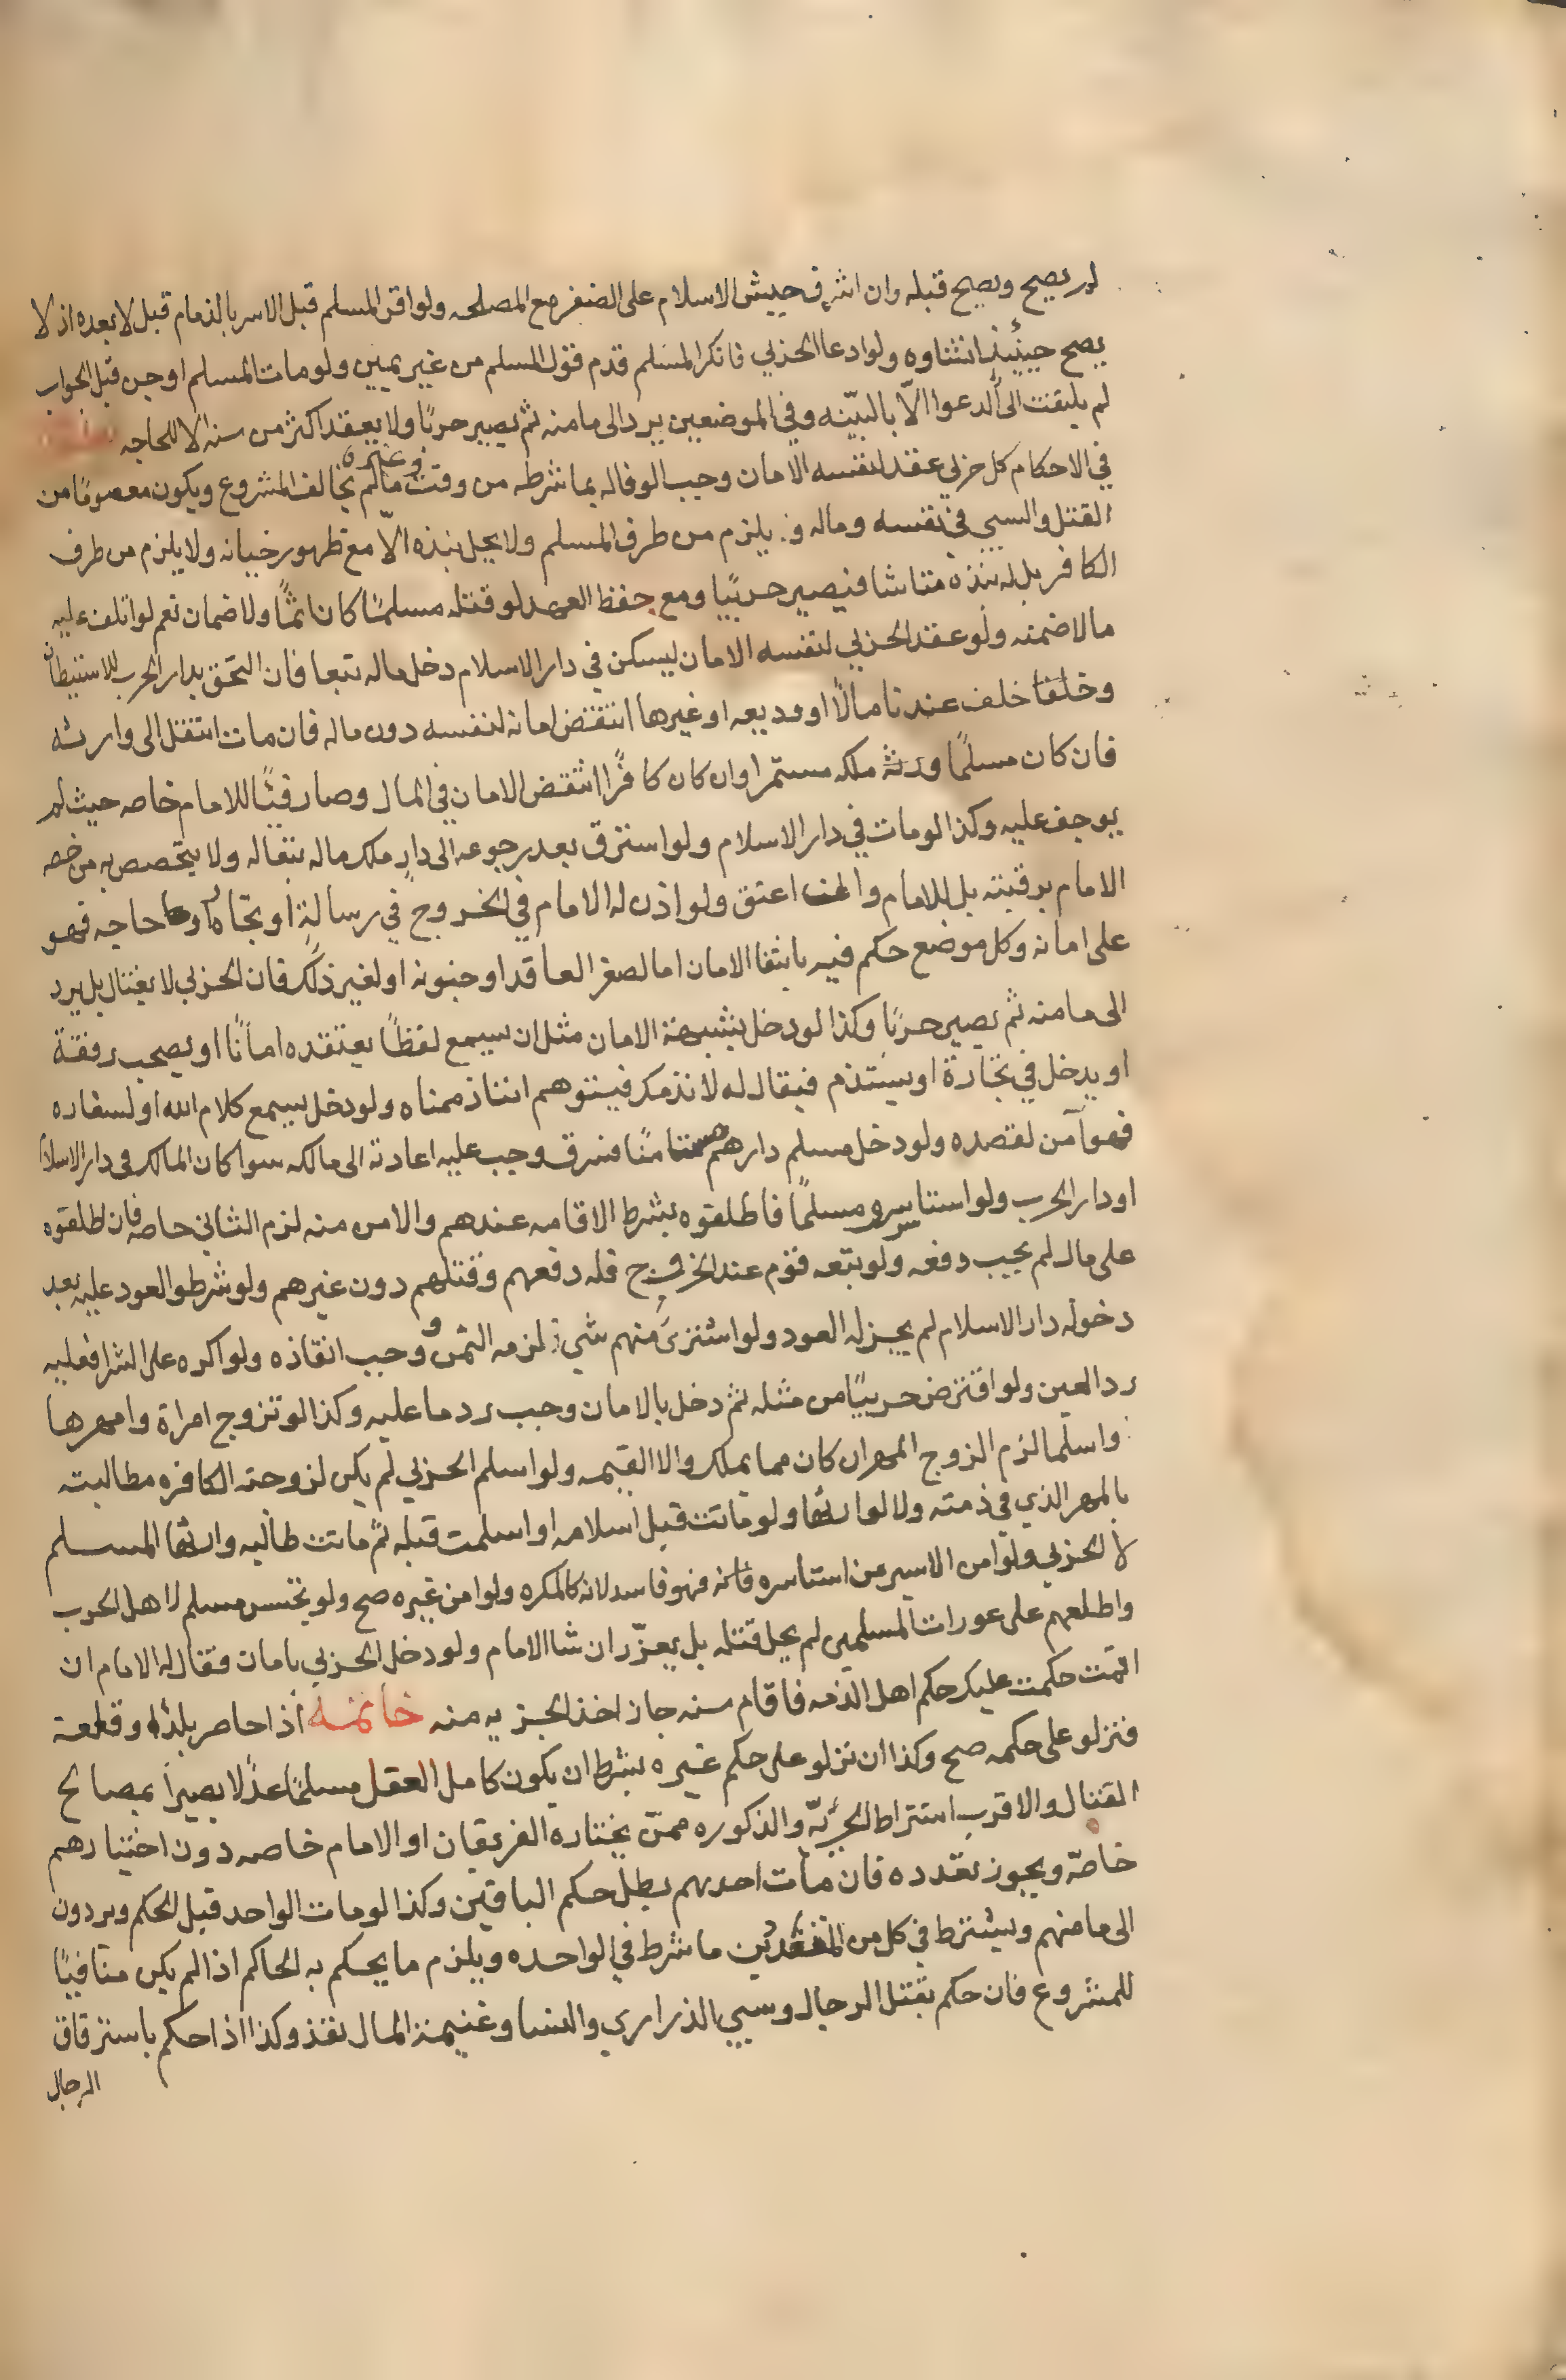 لم يصح ويصح قبله وان اشرف جيش الاسلام على الضفر مع المصلحه ولو اقر المسلم قبل الاسر بالذمام قبل لا بعده اذ لا
يصح حينئذ انشاوه ولو ادعا الحربي فانكر المسلم قدم قول المسلم من غير يمين ولو مات المسلم او جن قبل الجواب
لم يلتفت الى الدعوا الّا بالبيّنه وفي الموضعين يرد الى مامنه ثم يصير حربًا ولا يعقد اكثر من سنه الا للحاجه
في الاحكام كل حربي عقد لنفسه الامان وجب الوفا له بما شرطه من وقت وغيره مالم يخالف المشروع ويكون معصومًا من
القتل والسبي في نفسه وماله و يلزم من طرف المسلم ولا يحل نبذه الّا مع ظهور خيانه ولا يلزم من طرف
الكافر بل له نبذه متا شا فيصير حربيًا ومع حفظ العهد لو قتله مسلمًا كان اثمًا ولا ضمان نعم لو اتلف عليه
مالا ضمنه ولو عقد الحربي لنفسه الامان ليسكن في دار الاسلام دخل ماله تبعا فان التحق بدار الحرب للاستيطان
وخلف عندنا مالًا او وديعه او غيرها انتقض امانه لنفسه دون ماله فان مات انتقل الى وارثه
فان كان مسلمًا ورثه ملكه مستمرا وان كان كافرًا انتقض الامان في المال وصار فيًا للامام خاصه حيث لم
يوجف عليه وكذا لو مات في دار الاسلام ولو استرق بعد رجوعه الى دار ملك ماله تبعا له ولا يتخصص به من خصه
الامام برقبته بل للامام وان اعتق ولو اذن له الامام في الخروج في رسالةٍ او تجاره او حاجه فهو
على امانه وكل موضع حكم فيه بانتفا الامان اما لصغر العاقد او جنونه او لغير ذلك فان الحربي لا يغتال بل يرد
الى مامنه ثم يصير حربًا وكذا لو دخل بشبهة الامان مثل ان سيمع لفظًا يعتقده امانًا او يصحب رفقة
او يدخل في تجارة او يستذم فيقال له لا نذمك فيتوهم اننا ذممناه ولو دخل ليسمع كلام الله او لسفاره
فهو آمن لقصده ولو دخل مسلم دارهم مستامنًا فسرق وجب عليه اعادته الى مالكه سوا كان المالك في دار الاسلام
او دار الحرب ولو استاسرو مسلمًا فاطلقوه بشرط الاقامه عندهم والامن منه لزم الثاني خاصه فان اطلقوه
على مال لم يجب دفعه ولو تبعه قوم عند الخروج فله دفعهم وقتلهم دون غيرهم ولو شرطو العود عليه بعد
دخوله دار الاسلام لم يجز له العود ولو اشترى منهم شي لزمه الثمن و وجب انقاذه ولو اكره على الشرا فعليه
رد العين ولو اقترض حربيًا من مثله ثم دخل بالامان وجب رد ما عليه وكذا لو تزوج امراة وامهرها
واسلما لزم الزوج المهر ان كان مما يملك والا القيمه ولو اسلم الحربي لم يكن لزوجته الكافره مطالبته
بالمهر الذي في ذمته ولا لوارثها ولو ماتت قبل اسلامه او اسلمت قبله ثم ماتت طالبه وارثها المسلم
لا الحربي ولو امن الاسير من استاسره فانه فهو فاسد لانه كالمكره ولو امن غيره صح ولو تجسس مسلم لاهل الحرب
واطلعهم على عورات المسلمين لم يحل قتله بل يعزّر ان شا الامام ولو دخل الحربي بامان فقال له الامام ان
اقمت حكمت عليك حكم اهل الذمه فاقام سنه جاز اخذ الجزيه منه خاتمه اذا حاصر بلدًا او قلعة
فنزلو على حكمه صح وكذا ان نزلو على حكم غيره بشرط ان يكون كامل العقل مسلمًا عدلًا بصيرًا بمصالح
القتال والاقرب اشتراط الحريّه والذكوره ممن يختاره الفريقان او الامام خاصه دون اختيارهم
خاصّه ويجوز تعدده فان مات احدهم بطل حكم الباقين وكذا لو مات الواحد قبل الحكم ويردون
الى مامنهم ويشترط في كل من المتعددين ما شرط في الواحده ويلزم ما يحكم به الحاكم اذا لم يكن منافيًا
للمشروع فان حكم بقتل الرجال وسبي الذراري والنسا وغنيمة المال نفذ وكذا اذا حكم باسترقاق
الرجال